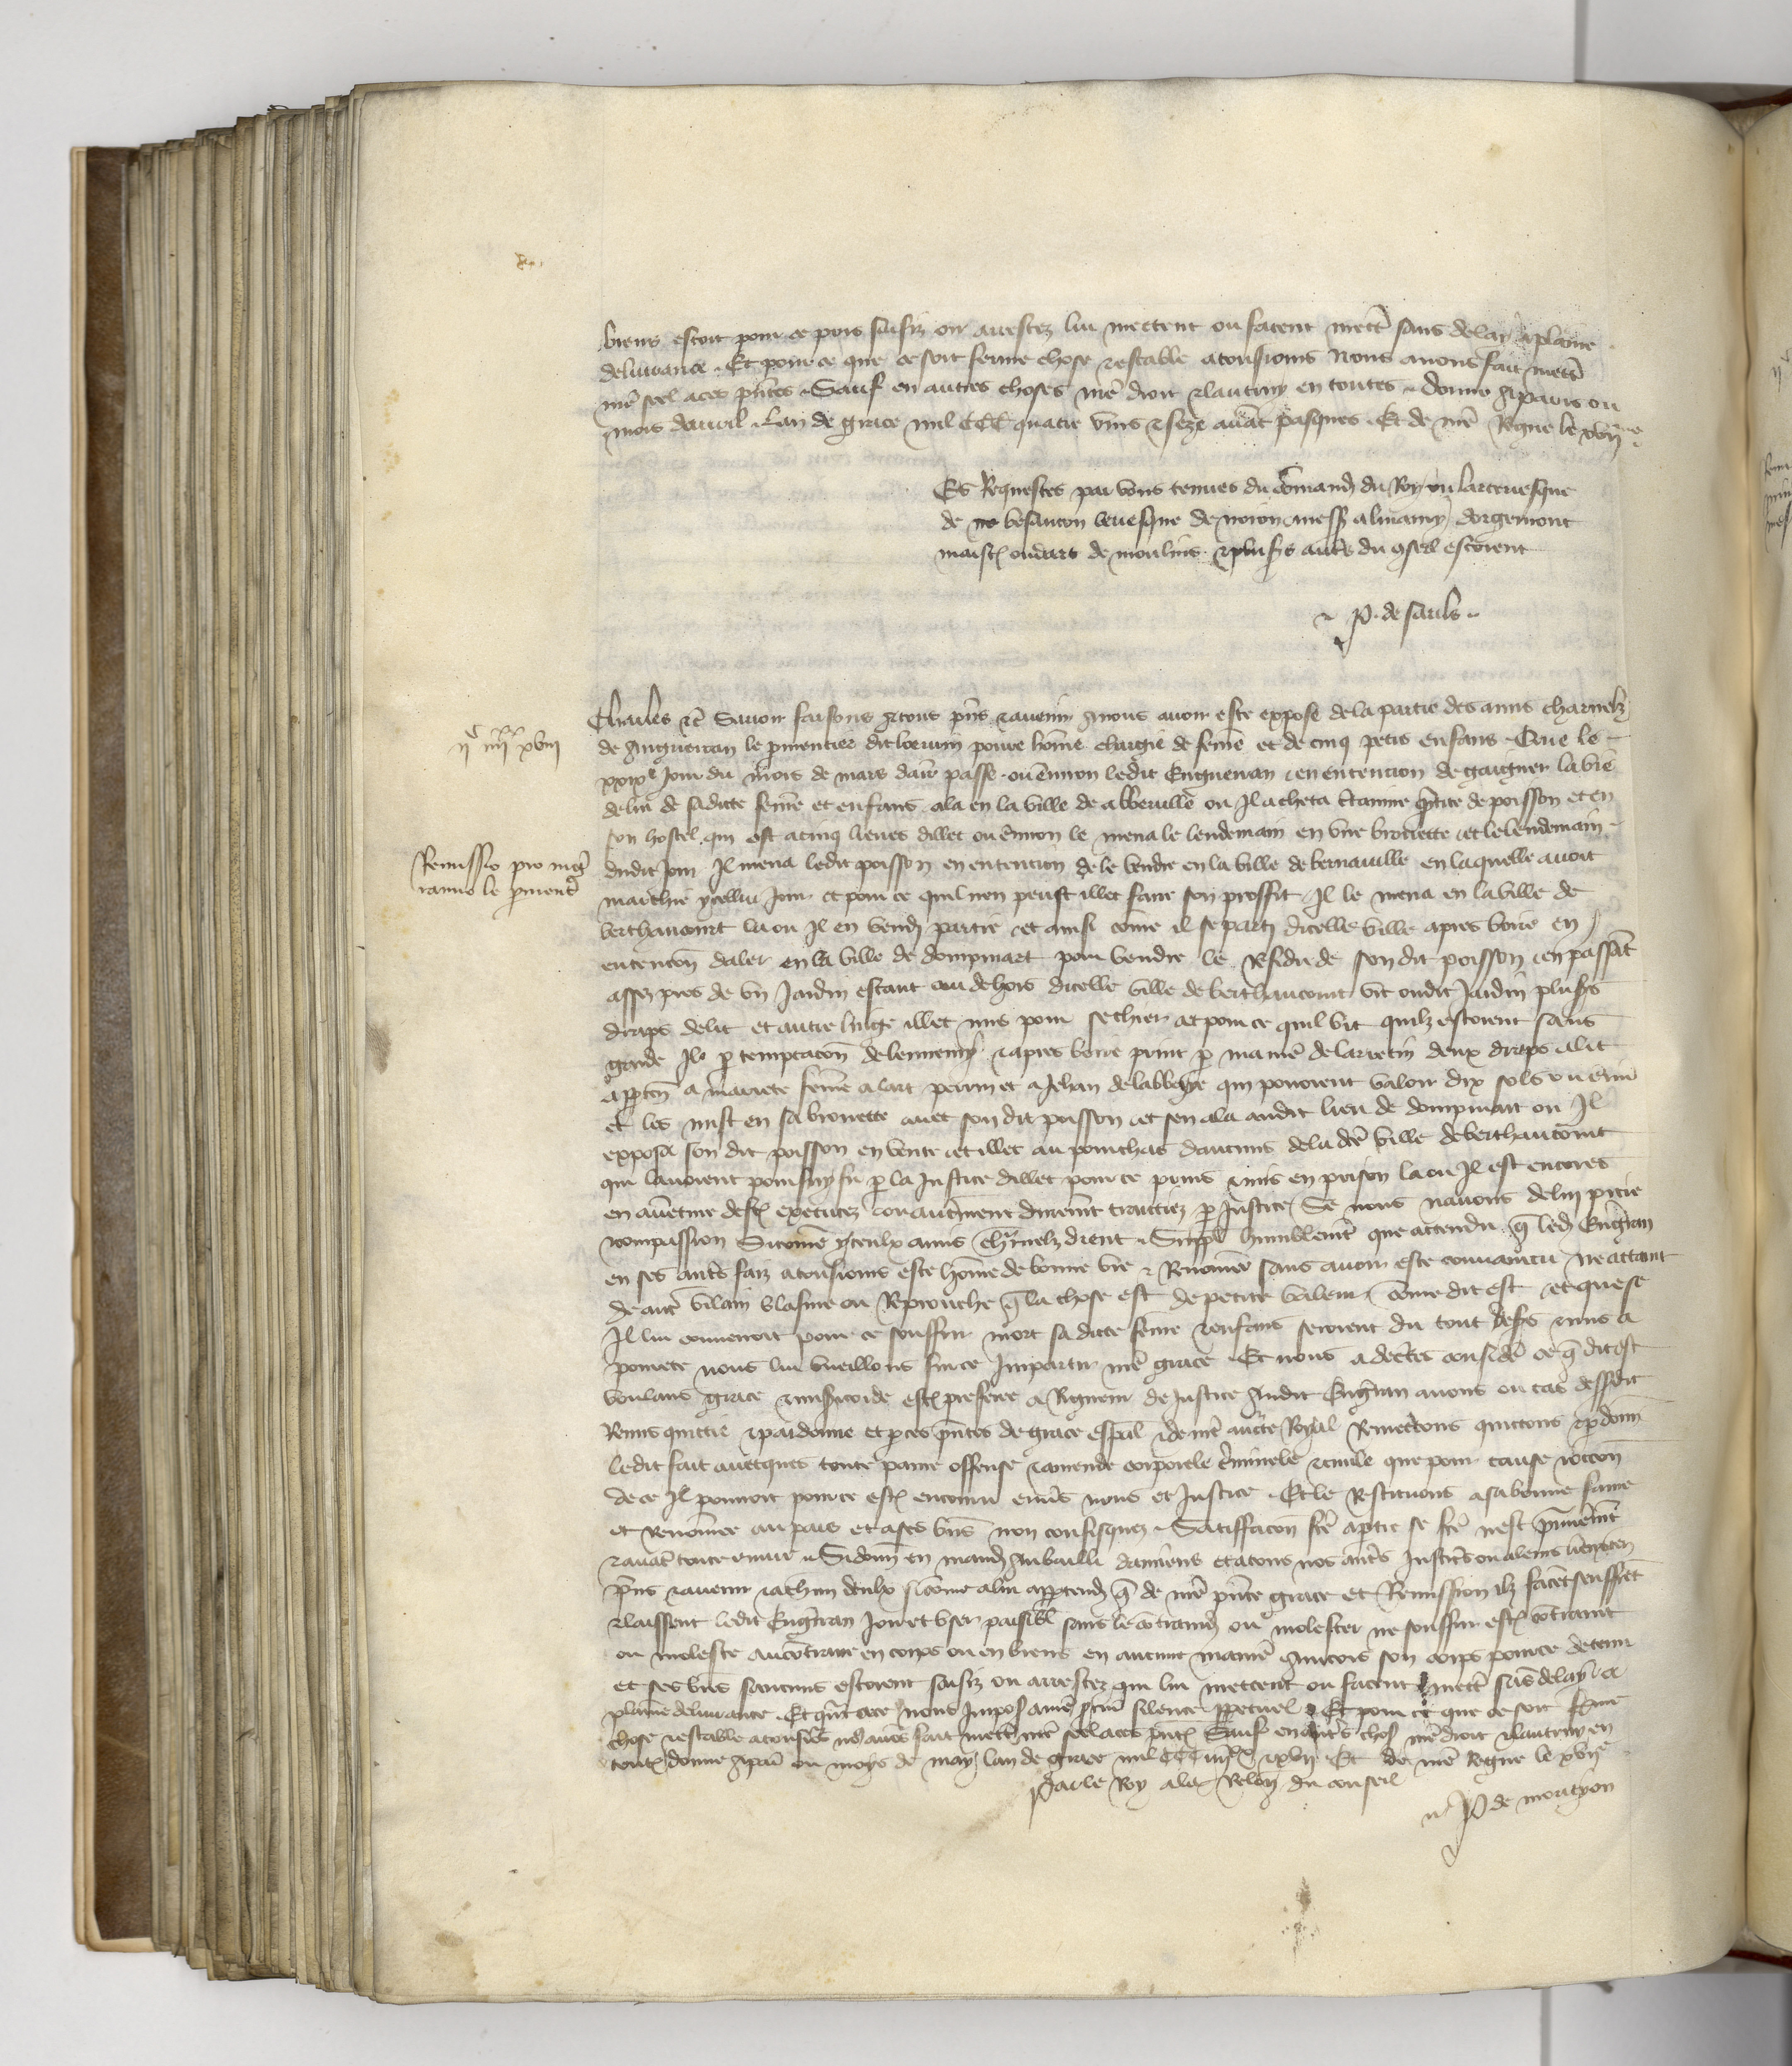 biens estoit pour ce pris saisiz ou arrestez lui mettent ou facent mettre sans delay a plaine
delivrance. Et pour ce que ce soit ferme chose et estable a tousjours Nous avons fait mettre
nre seel a ces pntes. Sauf en autres choses nre droit et lautruy en toutes. Donne a paris ou
mois davril. Lan de grace mil CCC quatre vins et seze avant pasques. Et de nre Regne le xvijme.
Es Requestes par vous tenues du comand du Roy ou larcevesque
de besancon levesque de noion mess almaury dorgemont
maistre oudart de moulins et plusrs autres du conseil estoient
P. de sauls.
ijc iiijxx xviij
Charles etc Savoir faisons a tous pns et avenir a nous avoir este expose de la partie des amis charnelz
de Anguerran le permentier dit lorain povre home chargie de feme et de cinq petis enfans. Que le
xxixe jour du mois de mars derr passe. ou environ ledit Enguerran en entencion de gaigner la vie
de lui de sadicte feme et enfans ala en la ville de abbeville ou Il acheta certaine quantite de poisson et en
son hostel qui est a cinq lieues dillec ou environ le mena le lendemain en une brouette et le lendemain
Remissio pro inger
ranno le permentr
dudit jour Il mena ledit poisson en entencion de le vendre en la ville de bernaville en laquelle avoit
marchie ycellui jour et pour ce quil nen peust illec faire son proffit Il le mena en la ville de
berthaucourt la ou Il en vendi partie et ainsi come il se parti dicelle ville apres boire en
entencon daler en la ville de dompmart pour vendre le Residu de son dit poisson en passant
assez pres de un jardin estant au dehors dicelle ville de berthaucourt vit oudit jardin plusrs
draps de lit et autre linge illec mis pour sechier et pour ce quil vit quilz estoient sans
garde Il par temptacon de lennemy et apres boire print par maniere de larrecin deux draps a lit
apperten a marote feme alart perrin et a Jehan de labbeye qui povoient valoir dix sols ou envir
et les mist en sa brouette avec son dit poisson et sen ala audit lieu de dompmart ou Il
exposa son dit poisson en vente et illec au pourchas daucuns de la dce ville de berthaucourt
qui lavoient poursuy fu par la Justice dillec pour ce prins et mis en prison la ou Il est encores
en aventure destre executez ou autrement durement traictiez par Justice Se nous navons de lui pitie
et compassion Si come yceulx amis charnelz dient. Suppl humblement que attendu q led Enguerran
en ses autres faiz a tousjours este home de bonne vie et Renomee sans avoir este convaincu ne attaint
de autre vilain blasme ou Reprouche q la chose est de petite valeur come dit est et que se
Il lui convenoit pour ce souffrir mort sa dicte feme et enfans seroient du tout desers et mis a
povrete nous lui vueillons sur ce Impartir nre grace. Et nous adecertes considere ce q dit est
voulans grace et misericorde estre preferee a Rigueur de Justice Audit Enguerran avons ou cas dessusdit
Remis quictie et pardonne et par ces pntes de grace espal et de nre aucte Royal Remettons quictons et pardonn
ledit fait avecques toute paine offense et amende corporele criminele et civile que pour cause et occon
de ce Il pourroit pour ce estre encouru envers nous et Justice. Et le Restituons a sa bonne fame
et Renomee au pais et a ses biens non confisquez. Satisfacon fce a ptie se fce nest premierement
et avant toute euvre. Si donn en mand au bailli damiens et a tous nos autres Justiciers ou a leurs lieuxten
pns et avenir et a chun deulx si come a lui apprtend q de nre pnte grace et Remission ilz facent seuffret
et laissent ledit Enguerran Jouir et user paisibl sans le contraindre ou molester ne souffrir estre contraint
ou moleste au contraire en corps ou en biens en aucune maniere Aincois son corps pour ce detenu
et ses biens saucuns estoient saisiz ou arrestez qui lui mettent ou facent mettre sans delay a
plaine delivrance. Et quant a ce Nous Imposons a nre procur silence perpetuel Et pour ce que ce soit ferme
chose et estable a tousjours nous avons fait mettre nre seel a ces pntes Sauf en autres choses nre droit et lautruy en
toutes donne a paris ou moys de may lan de grace mil CCC iiijxx xvij. Et de nre Regne le xvije
Par le Roy a la Relon du conseil
P de montyon